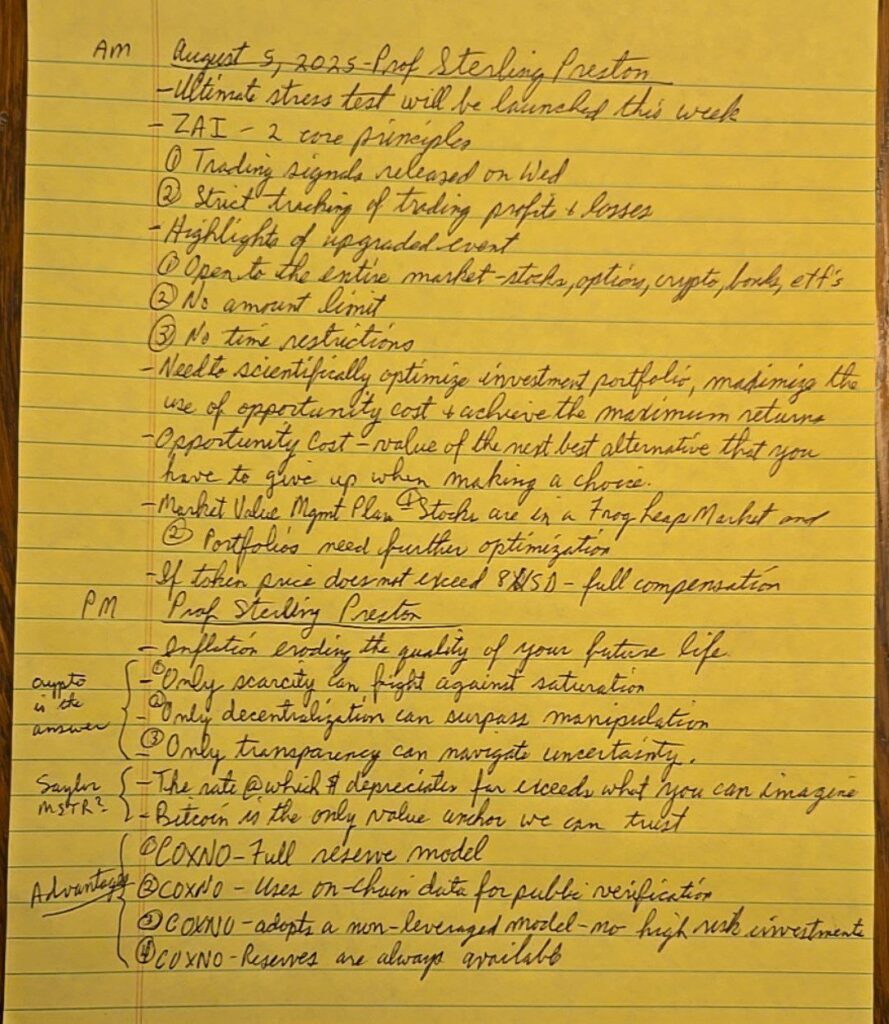 AM August 5, 2025 - Prof Sterling Preston
- Ultimate stress test will be launched this week
- ZAI - 2 core principles
① Trading signals released on Wed
② Strict tracking of trading profits + losses
- Highlights of upgraded event
① Open to the entire market - stocks, options, crypto, bonds, etf's
② No amount limit
③ No time restrictions
- Need to scientifically optimize investment portfolio, maximize the
use of opportunity cost + achieve the maximum returns
- Opportunity Cost - value of the next best alternative that you
have to give up when making a choice.
- Market Value Mgmt Plan ① Stocks are in a Frog Leap Market and
② Portfolios need further optimization
- If token price does not exceed 8 USD - full compensation
PM Prof Sterling Preston
- Inflation eroding the quality of your future life
crypto is the answer
- ① Only scarcity can fight against saturation
- ② Only decentralization can surpass manipulation
- ③ Only transparency can navigate uncertainty.
Saylor MSTR?
- The rate @ which $ depreciates far exceeds what you can imagine
- Bitcoin is the only value anchor we can trust
Advantages
① COXNO - Full reserve model
② COXNO - Uses on-chain data for public verification
③ COXNO - adopts a non-leveraged model - no high risk investments
④ COXNO - Reserves are always available